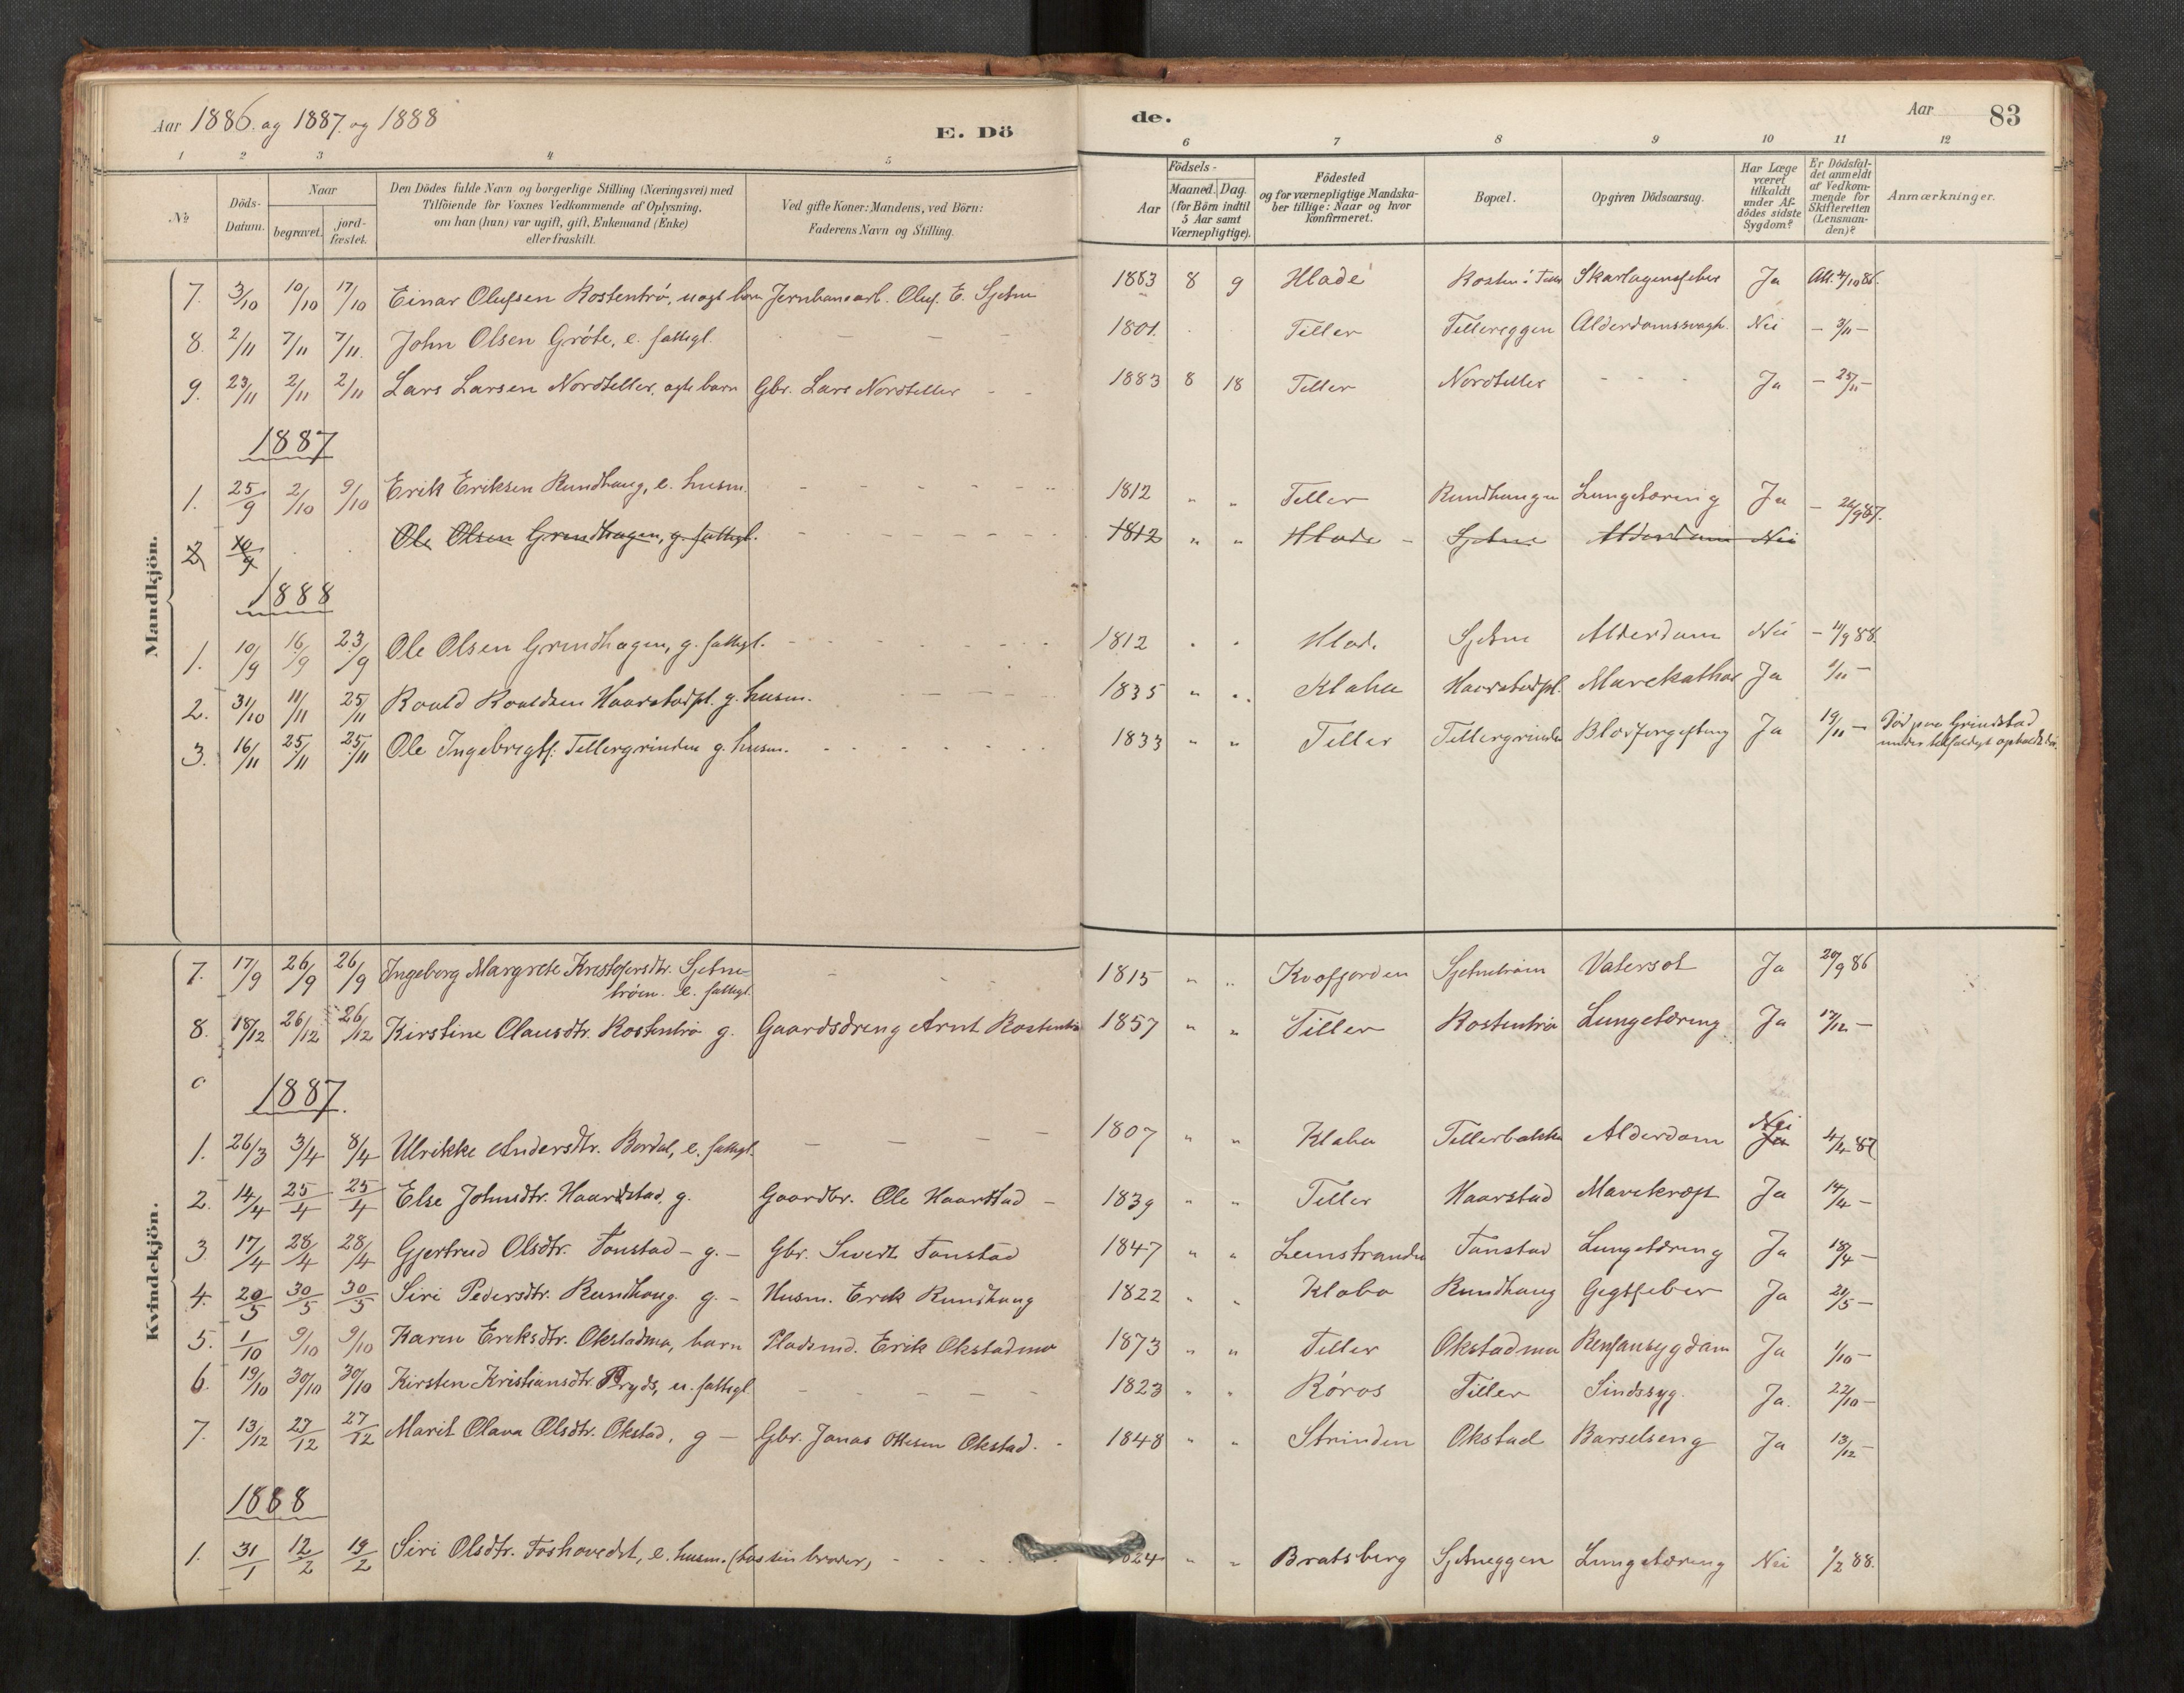 Aar 1886. og 1887. og 1888
E. Dö
de.
Aar 83
1 2 3 4 5 6 7 8 9 10 11 12
No
Döds-Datum.
Naar
begravet.
jord-fæstet.
Den Dödes fulde Navn og borgerlige Stilling (Næringsvei) med
Tilföiende for Voxnes Vedkommende af Oplysning,
om han (hun) var ugift, gift, Enkemand (Enke)
eller fraskilt.
Ved gifte Koner: Mandens, ved Börn:
Faderens Navn og Stilling.
Födsels-
Aar
Maaned. Dag.
(for Börn indtil
5 Aar samt
Værnepligtige).
Födested
og for værnepligtige Mandska-
ber tillige: Naar og hvor
konfirmeret.
Bopæl.
Opgiven Dödsaarsag.
Har Læge
været
tilkaldt
under Af-
dödes sidste
Sygdom?
Er Dödsfal-
det anmeldt
af Vedkom-
mende for
Skifteretten
(Lensman-
den)?
Anmærkninger.
Mandkjön.
7. 3/10 10/10 17/10 Einar Olufsen Rostentrö, uægt barn Jernbanearb. Oluf E. Sjetne 1883 8 9 Hlade Rosten i Tiller Skarlagensfeber Ja Att. 4/10 86.
8. 2/11 7/11 7/11. John Olsen Gröte, e. fattigl. - - - 1801. Tiller Tillereggen Alderdomssvagh. Nei - 3/11 -
9. 23/11 2/11 2/11 Lars Larsen Nordtiller, ægte barn Gbr. Lars Nordtiller - - 1883 8 18 Tiller Nordtiller - - - Ja - 25/11 -
1887
1. 25/9 2/10 9/10 Erik Eriksen Rundhaug, e. husm. - - - 1812 " " Tiller Rundhaugen Lungetæring Ja - 26/9 87.
2 10/9 Ole Olsen Grindhagen, g. fattigl. - - - 1812 " " Hlade - Sjetne Alderdom Nei
1888
1. 10/9 16/9 23/9 Ole Olsen Grindhagen, g. fattigl. - - - 1812 " " Hlade Sjetne Alderdom Nei - 11/9 88.
2. 31/10 11/11 25/11 Roald Roaldsen Haarstadpl. g. husm. - - - 1835 " " Klæbu Haarstadpl. Mavekathar Ja 1/11 -
3. 16/11 25/11 25/11 Ole Ingebrigts. Tillergrinden g. husm. - - - 1833 " " Tiller Tillergrinden Blodforgiftning Ja 19/11 - Död paa Grindstad
under tilfældigt ophold der.
Kvindekjön.
7. 17/9 26/9 26/9 Ingeborg Margrete Kristofersdtr. Sjetne-
tröen. e. fattigl. - - - 1815 " " Kvofjorden Sjetnetröen Vatersot Ja 20/9 86
8. 18/12 26/12 26/12 Kirstine Olausdtr. Rostentrö g. Gaardsdreng Arnt Rostentrö 1857 " " Tiller Rostentrö Lungetæring Ja 17/12 -
1887.
1. 26/3 3/4 8/4 Ulrikke Andersdtr. Bordal, e. fattigl. - - - 1807 " " Klæbu Tillerbakken Alderdom Ja Nei 4/4 87
2. 14/4 25/4 25/4 Else Johnsdtr. Haarstad, g. Gaardbr. Ole Haarstad - 1839 " " Tiller Haarstad Mavekræft Ja 14/4 -
3. 17/4 28/4 28/4 Gjertrud Olsdtr. Tonstad - g. - Gbr. Sivert Tonstad 1847 " " Leinstranden Tonstad Lungetæring Ja 18/4 -
4. 20/5 30/5 30/5 Siri Pedersdtr. Rundhaug. g. - Husm. Erik Rundhaug 1822 " " Klæbo Rundhaug Gigtfeber Ja 21/5 -
5. 1/10 9/10 9/10 Karen Eriksdtr. Okstadmo, barn Pladsmd. Erik Okstadmo 1873 " " Tiller Okstadmo Ja 1/10 -
6. 19/10 30/10 30/10 Kirsten Kristiansdtr. Pryds, u. fattigl. - - - 1823 " " Röros Tiller Sindssyg. Ja. 22/10 -
7. 13/12 27/12 27/12 Marit Olava Olsdtr. Okstad, g - Gbr. Jonas Ottesen Okstad. - 1848 " " Strinden Okstad Barselseng Ja 13/12 -
1888
1. 31/1 12/2 19/2 Siri Olsdtr. Foshovedet, e. husm. (hos sin broder) - - - 1824 " " Bratsberg Sjetneggen Lungetæring Nei 1/2 88.